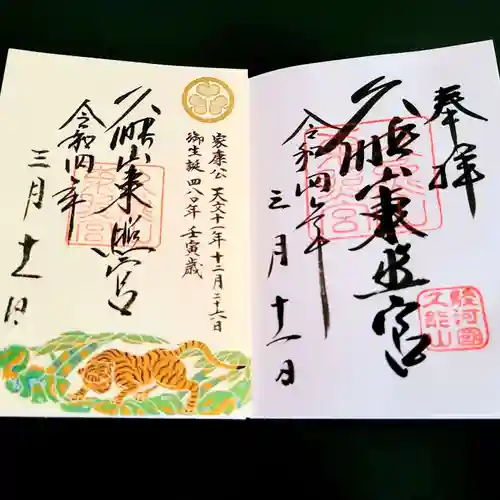 奉拝
久能山東照宮
令和四年
三月十一日
駿河國
久能山
家康公 天文十一年十二月二十六日
御生誕四八〇年 壬寅歳
久能山東照宮
令和四年
三月十一日